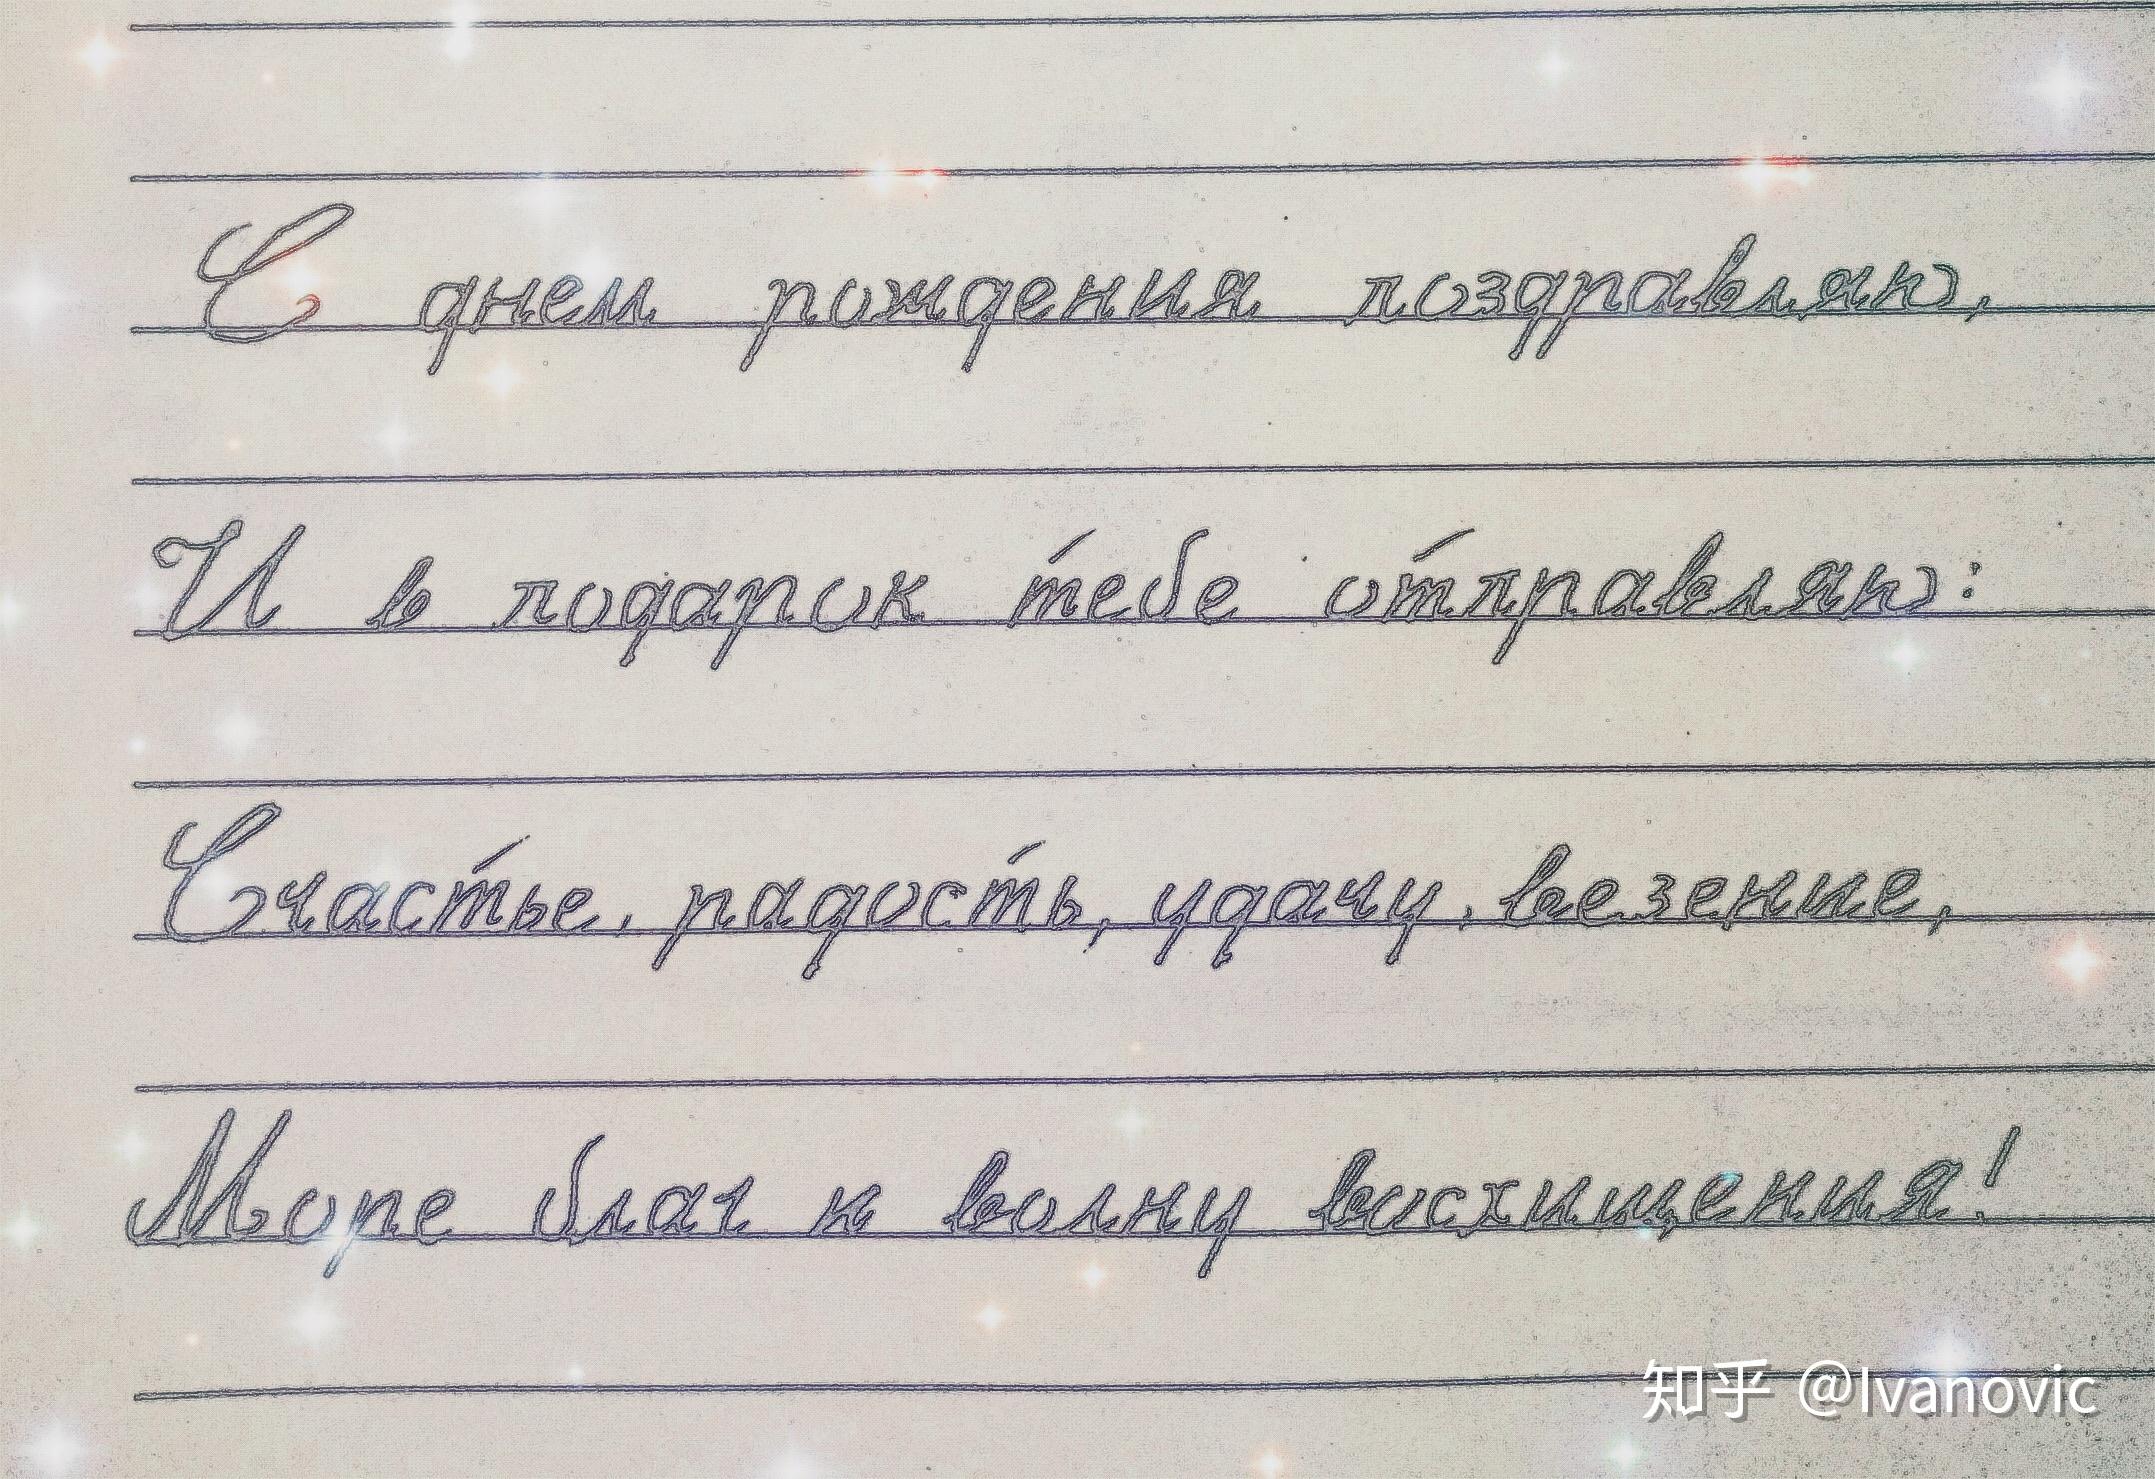 С днем рождения поздравляю,
И в подарок тебе отправляю:
Счастье, радость, удачу, везение,
Море благ и волну восхищения!
知乎 @Ivanovic